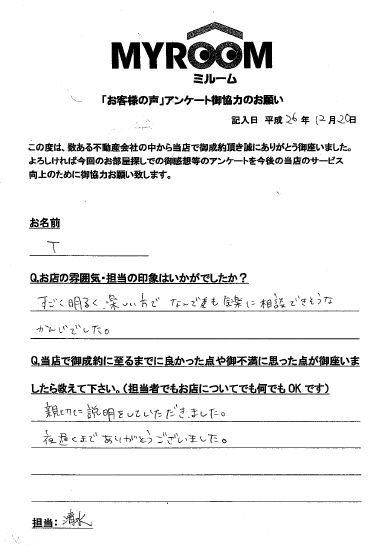 MYROOM
ミルーム
「お客様の声」アンケート御協力のお願い
記入日 平成 26 年 12 月 20 日
この度は、数ある不動産会社の中から当店で御成約頂き誠にありがとう御座いました。
よろしければ今回のお部屋探しでの御感想等のアンケートを今後の当店のサービス
向上のために御協力お願い致します。
お名前
T
Q.お店の雰囲気・担当の印象はいかがでしたか？
すごく明るく、楽しい方で なんでも気楽に相談できそうな
かんじでした。
Q.当店で御成約に至るまでに良かった点や御不満に思った点が御座いま
したら教えて下さい。（担当者でもお店についてでも何でもOKです）
親切に説明をしていただきました。
夜遅くまでありがとうございました。
担当：清水